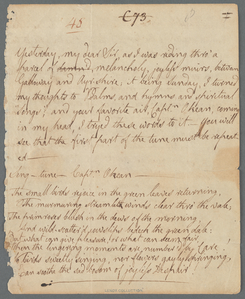 43
C 73.
Yesterday, my dear Sir, as I was riding thro' a
parcel of damn'd, melancholy, joyless muirs, between
Galloway and Ayrshire, it being Sunday, I turned
my thoughts to Psalms and hymns and spiritual
Songs; and your favorite air Captn Okean, coming
in my head, I tryed these words to it. You will
see that the first part of the tune must be repeat
ed —
Song — tune — Captn Okean —
The small birds rejoice in the green leaves returning,
The murmuring streamlet winds clear thro' the vale;
The primroses blush in the dews of the morning,
And wild-scatter'd cowslips bedeck the green dale:
But what can give pleasure, or what can seem fair,
When the lingering moments are number'd by Care?
birds sweetly singing, nor flowers gayly springing,
Can soothe the sad bosom of joyless Despair.